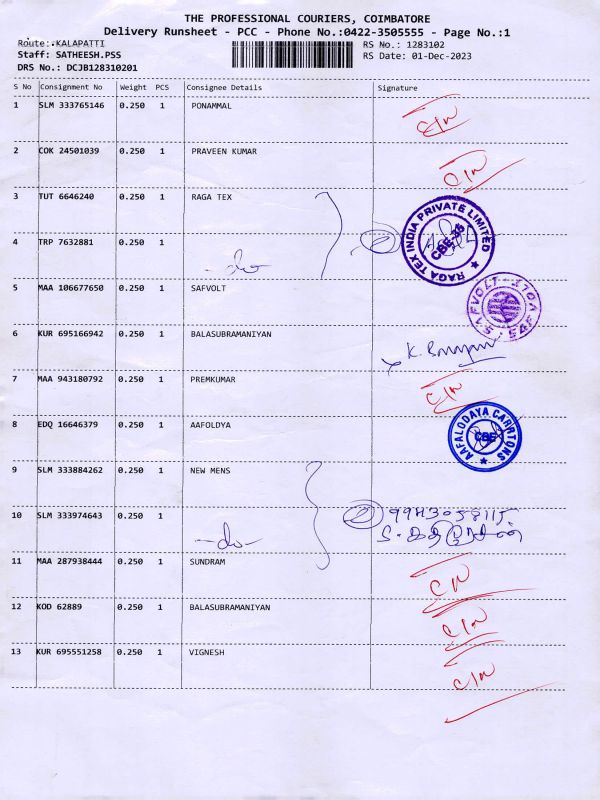 THE PROFESSIONAL COURIERS, COIMBATORE
Delivery Runsheet - PCC - Phone No.:0422-3505555 - Page No.:1
Route:.KALAPATTI
Staff: SATHEESH.PSS
DRS No.: DCJB128310201
RS No.: 1283102
RS Date: 01-Dec-2023
S No Consignment No Weight PCS Consignee Details Signature
1 SLM 333765146 0.250 1 PONAMMAL
2 COK 24501039 0.250 1 PRAVEEN KUMAR
3 TUT 6646240 0.250 1 RAGA TEX
RAGA TEX INDIA PRIVATE LIMITED
CBE-35
4 TRP 7632881 0.250 1
-do-
5 MAA 106677650 0.250 1 SAFVOLT
6 KUR 695166942 0.250 1 BALASUBRAMANIYAN
7 MAA 943180792 0.250 1 PREMKUMAR
8 EDQ 16646379 0.250 1 AAFOLDYA
AAFALODAYA CARRTONS
CBE
9 SLM 333884262 0.250 1 NEW MENS
10 SLM 333974643 0.250 1
-do-
2 9943058115
S. கதிரேசன்
11 MAA 287938444 0.250 1 SUNDRAM
12 KOD 62889 0.250 1 BALASUBRAMANIYAN
13 KUR 695551258 0.250 1 VIGNESH